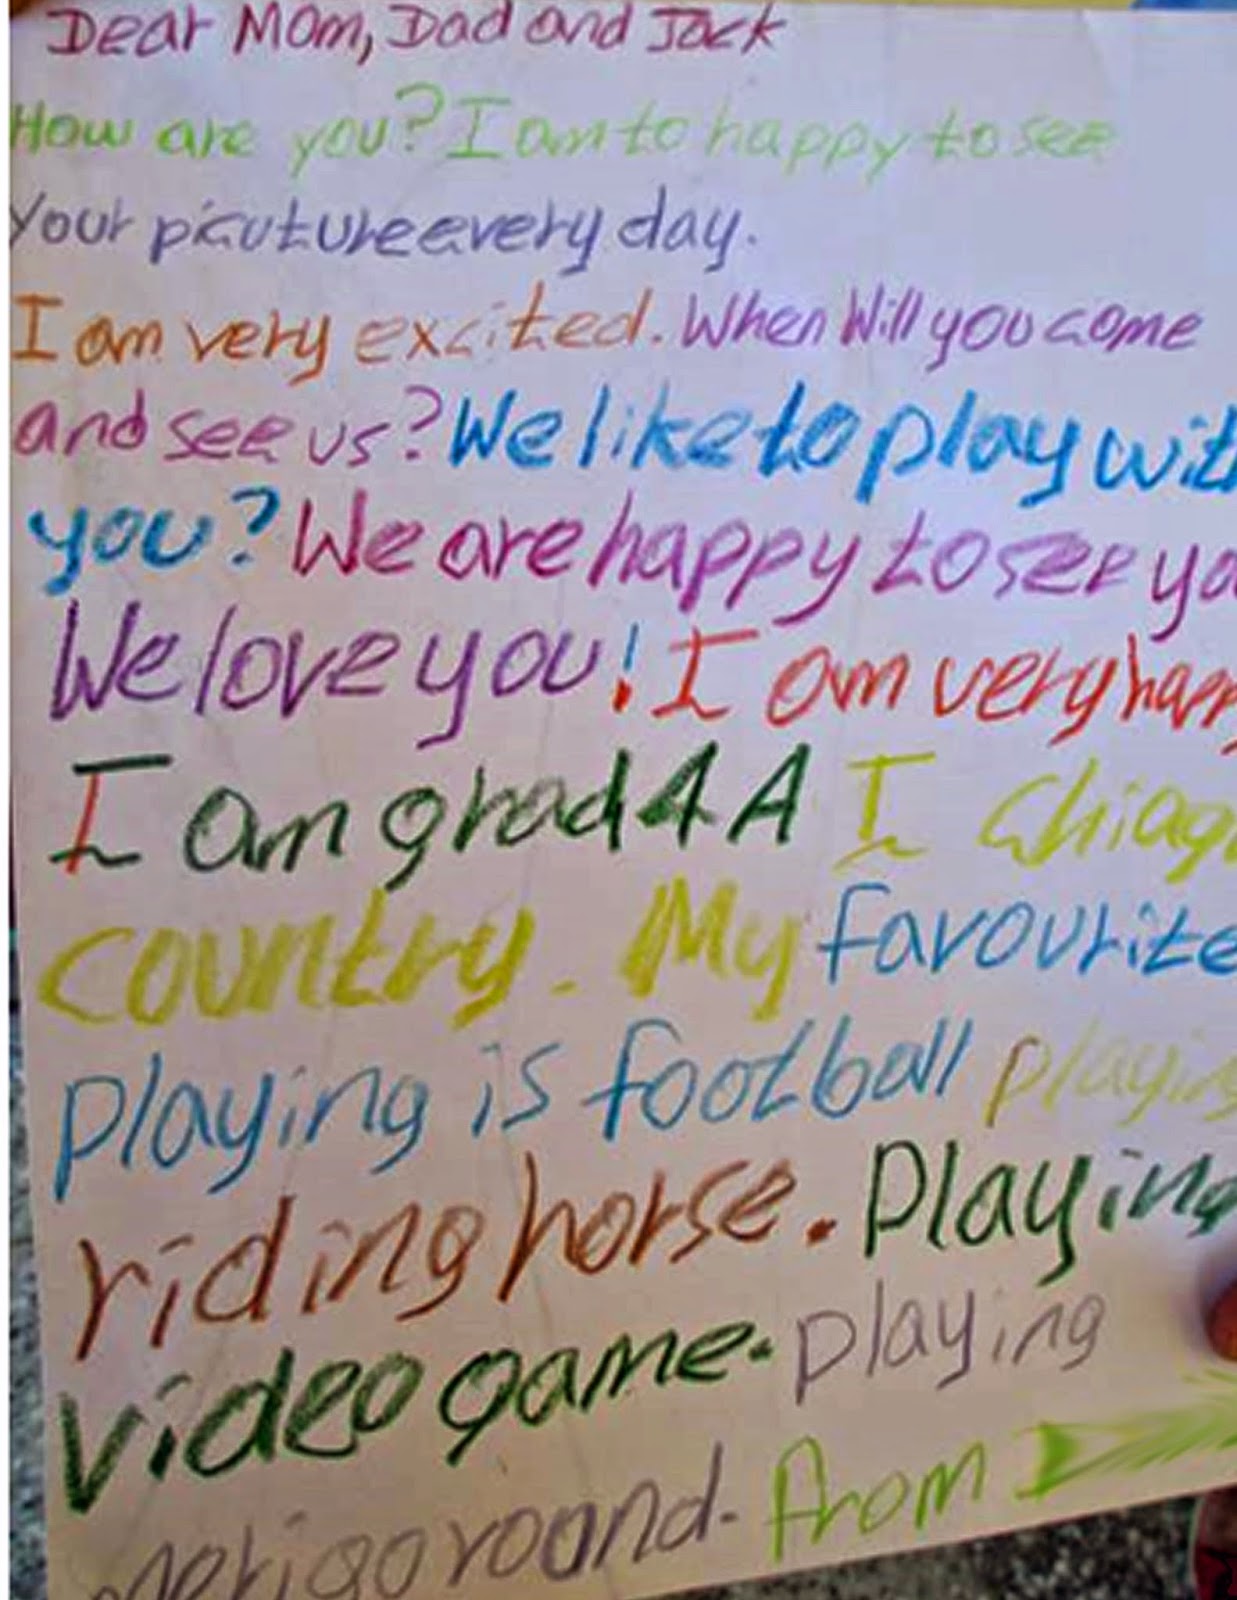 Dear Mom, Dad and Jack
How are you? I am to happy to see
Your picuture every day.
I am very excited. When Will you come
and see us? We like to play wit
you? We are happy to see yo
We love you! I am very happ
I am grad 4 A I Chiag
country. My favourite
playing is football playing
riding horse. Playing
video game. playing
merigoroond. from